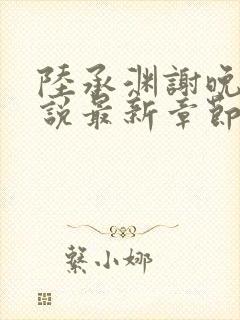 陸承渊謝晚
說最新章節
繫小娜